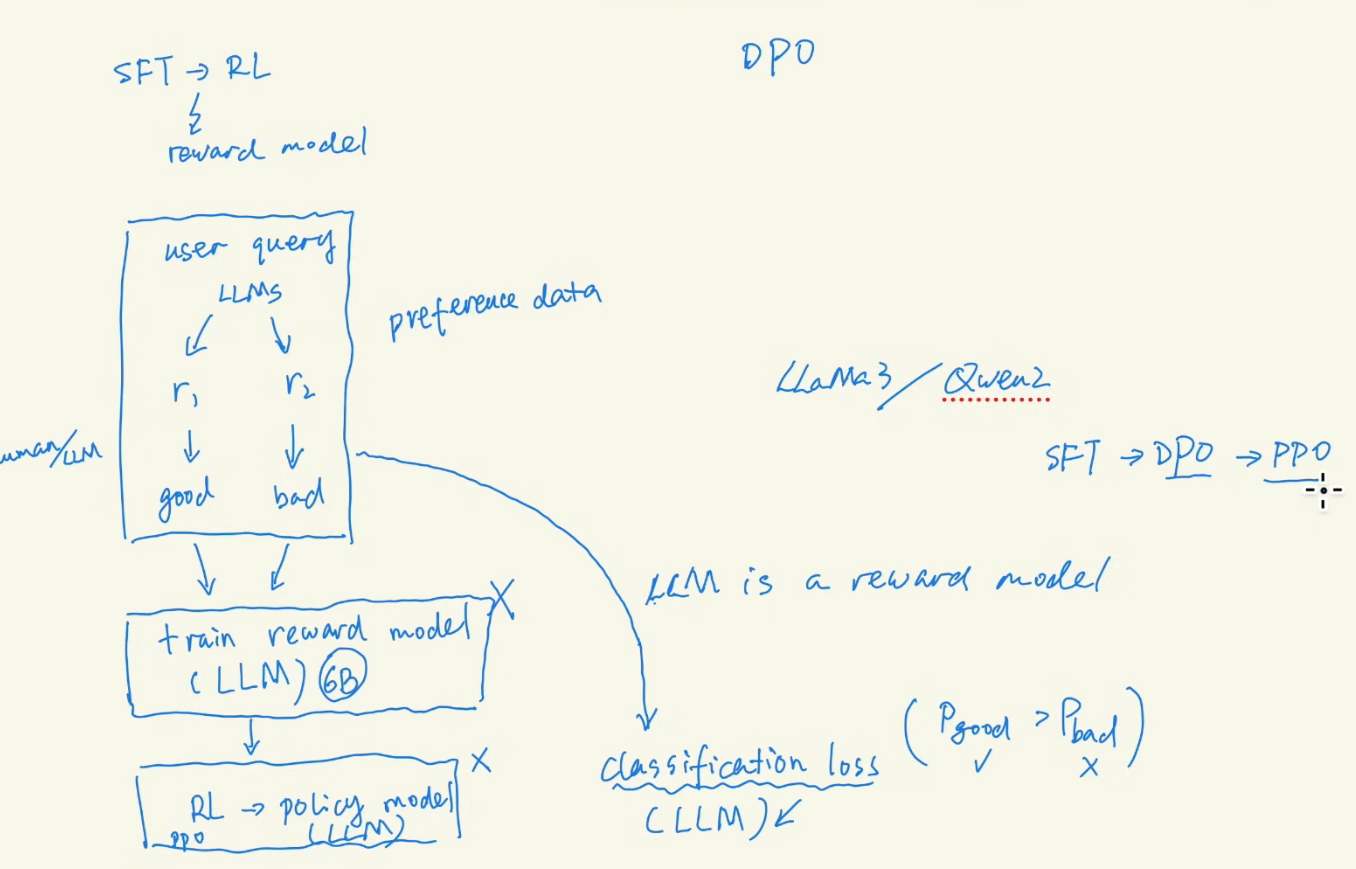 SFT → RL
reward model
DPO
user query
LLMs
r₁ r₂
good bad
preference data
/LLM
train reward model
(LLM) 6B
X
RL → policy model
PPO (LLM)
X
LLaMa3/Qwen2
SFT → DPO → PPO
LLM is a reward model
classification loss
(LLM)
(Pgood > Pbad)
✓ X